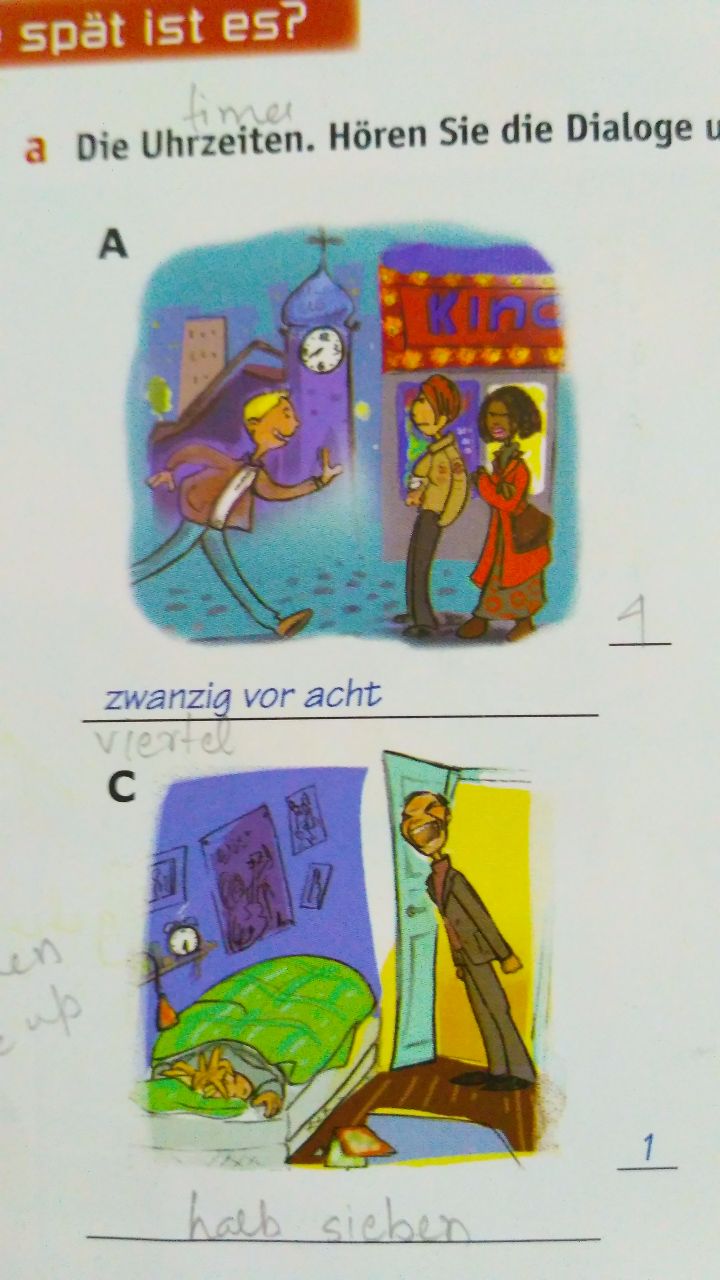 spät ist es?
time
a Die Uhrzeiten. Hören Sie die Dialoge u
A
Kino
4
zwanzig vor acht
viertel
C
en
up
1
halb sieben